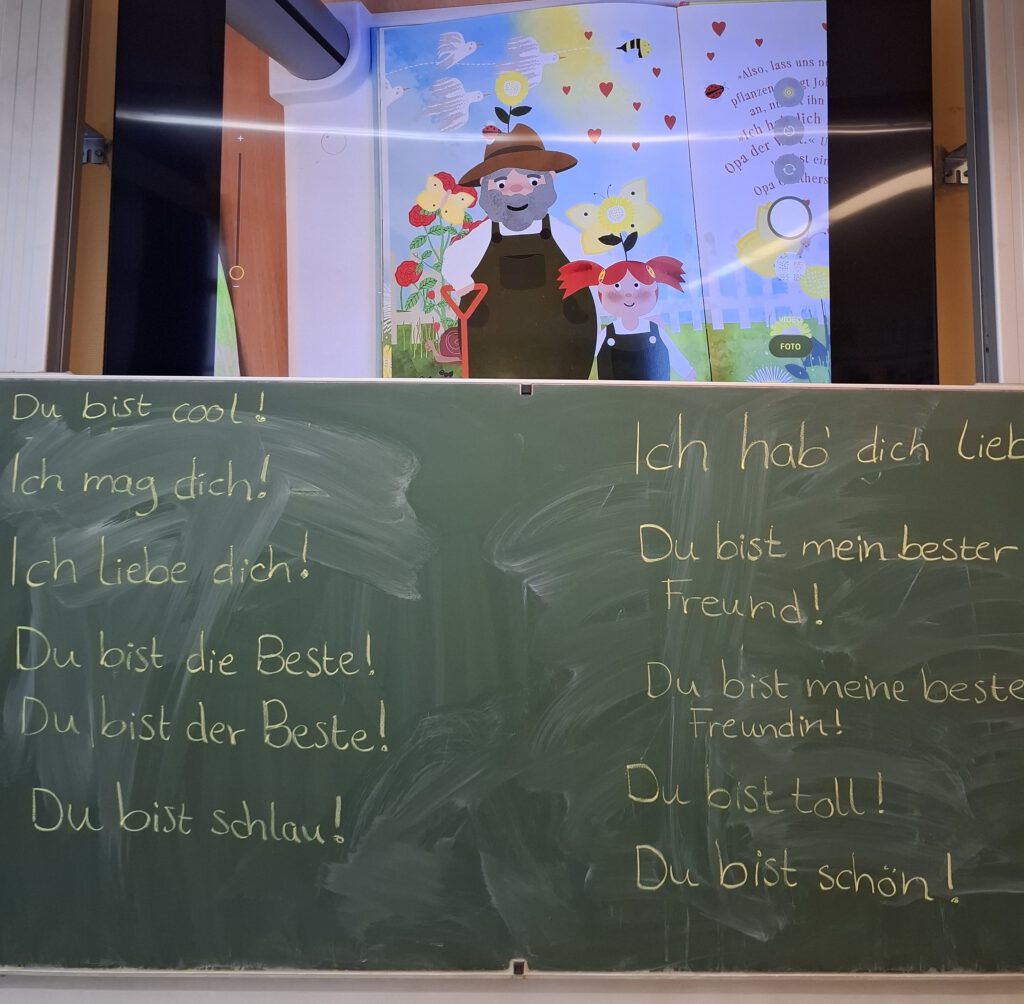 »Also, lass uns
pflanzen
an, ihn
»Ich dich
Opa der
ein
Opa
VIDEO
FOTO
Du bist cool!
Ich mag dich!
Ich liebe dich!
Du bist die Beste!
Du bist der Beste!
Du bist schlau!
Ich hab' dich lieb
Du bist mein bester
Freund!
Du bist meine beste
Freundin!
Du bist toll!
Du bist schön!